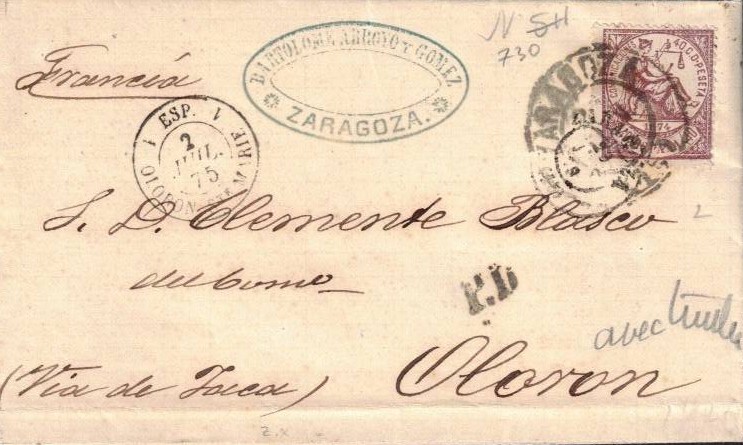 Francia
BARTOLOME ARROYO Y GOMEZ
ZARAGOZA.
N 5H
730
40 C. D. PESETA
ZARAGOZA
1 ESP. 1
2
JUIL.
75
OLORON-STE MARIE
S. D. Clemente Blasco
del Comº
P.D
2
avec
(Via de Jaca)
Oloron
z.x